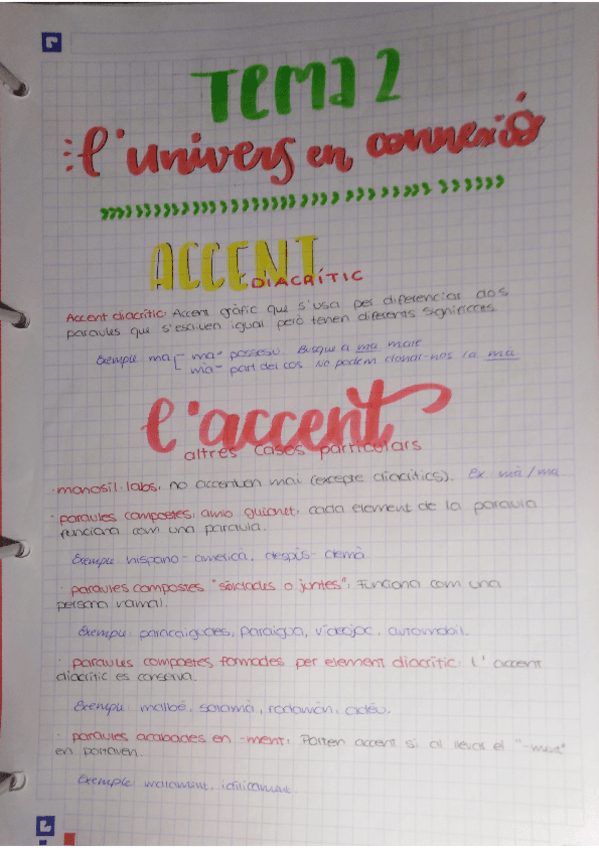 TEMA 2
l'univers en connexió
ACCENT
DIACRÍTIC
Accent diacrític: Accent gràfic que s'usa per diferenciar dos
paraules que s'escriuen igual però tenen diferents significats.
Exemple ma ma- possessiu Busque a ma mare
mà- part del cos No podem donar-nos la mà
l'accent
altres casos particulars
· monosíl·labs, no accentuen mai (excepte diacrítics). Ex mà/ma
· paraules compostes, amb guionet, cada element de la paraula
funciona com una paraula.
Exemple hispano-americà, després-demà
· paraules compostes "soldades o juntes", Funciona com una
persona normal.
Exemple: paracaigudes, paraigua, videojoc, automòbil.
· paraules compostes formades per element diacrític. L'accent
diacrític es conserva.
Exemple: adéu.
· paraules acabades en -ment, Porten accent si al llevar el "-ment"
en portaven.
Exemple: